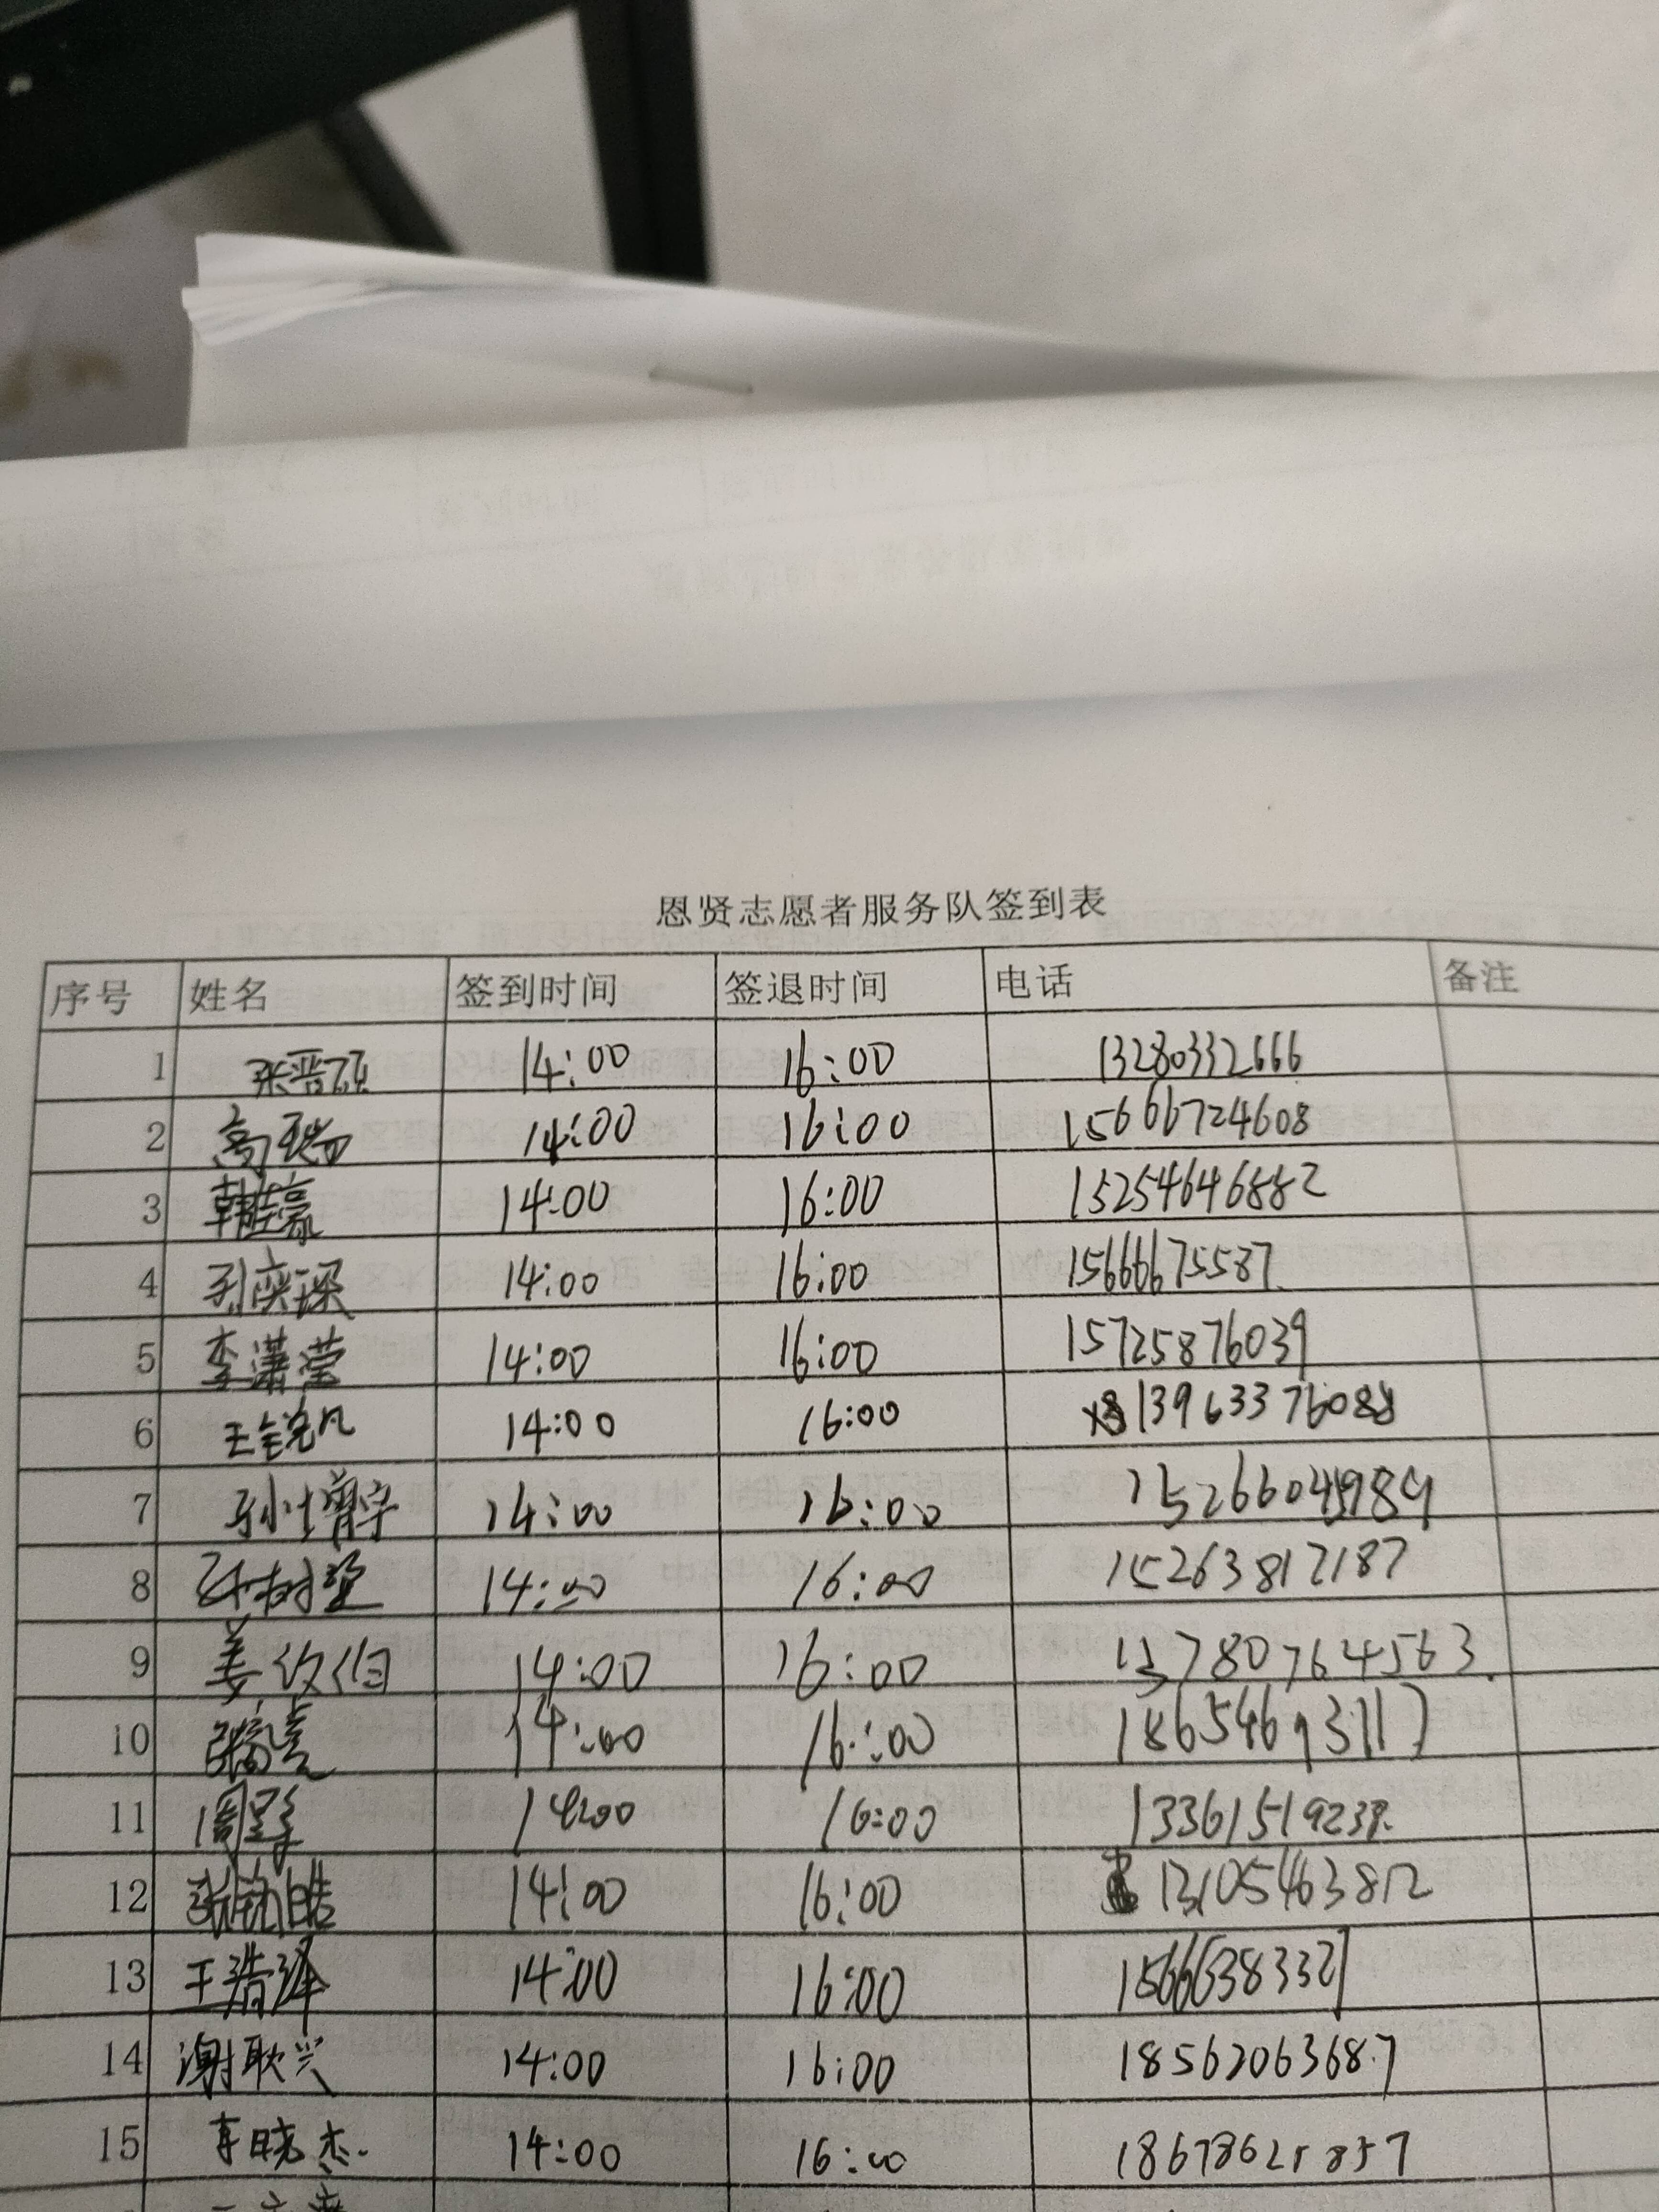 恩贤志愿者服务队签到表
序号 姓名 签到时间 签退时间 电话 备注
1 张晋硕 14:00 16:00 13280332666
2 高瑞 14:00 16:00 15666724608
3 韩 豪 14:00 16:00 15254646882
4 刘奕琛 14:00 16:00 15666675587
5 李潇莹 14:00 16:00 15725876039
6 王锐凡 14:00 16:00 13963376088
7 孙增宇 14:00 16:00
8 孙树堂 14:00 16:00 15263817187
9 姜 伯 14:00 16:00 13780764563
10 张 14:00 16:00
11 周 14:00 16:00
12 张 皓 14:00 16:00 13105463812
13 王浩泽 14:00 16:00
14 谢耿兴 14:00 16:00 18562063687
15 李晓杰 14:00 16:00